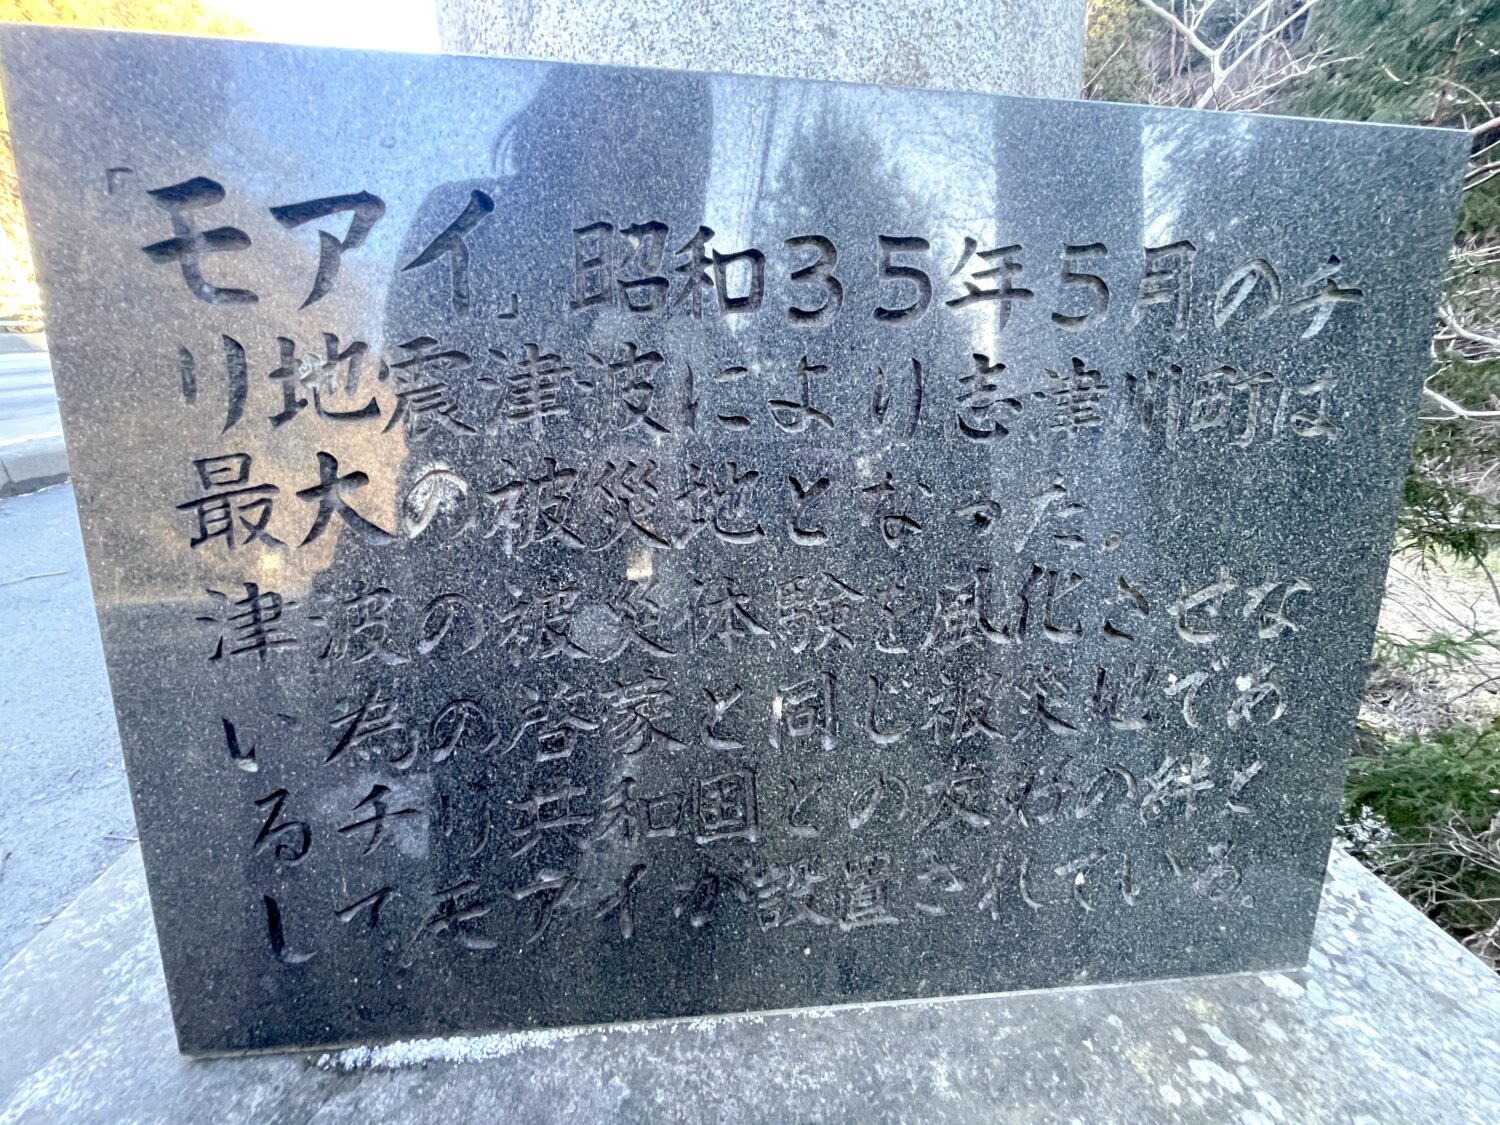 「モアイ」昭和３５年５月のチ
リ地震津波により志津川町は
最大の被災地となった。
津波の被災体験を風化させな
い為の啓蒙と同じ被災地であ
るチリ共和国との友好の絆と
してモアイが設置されている。